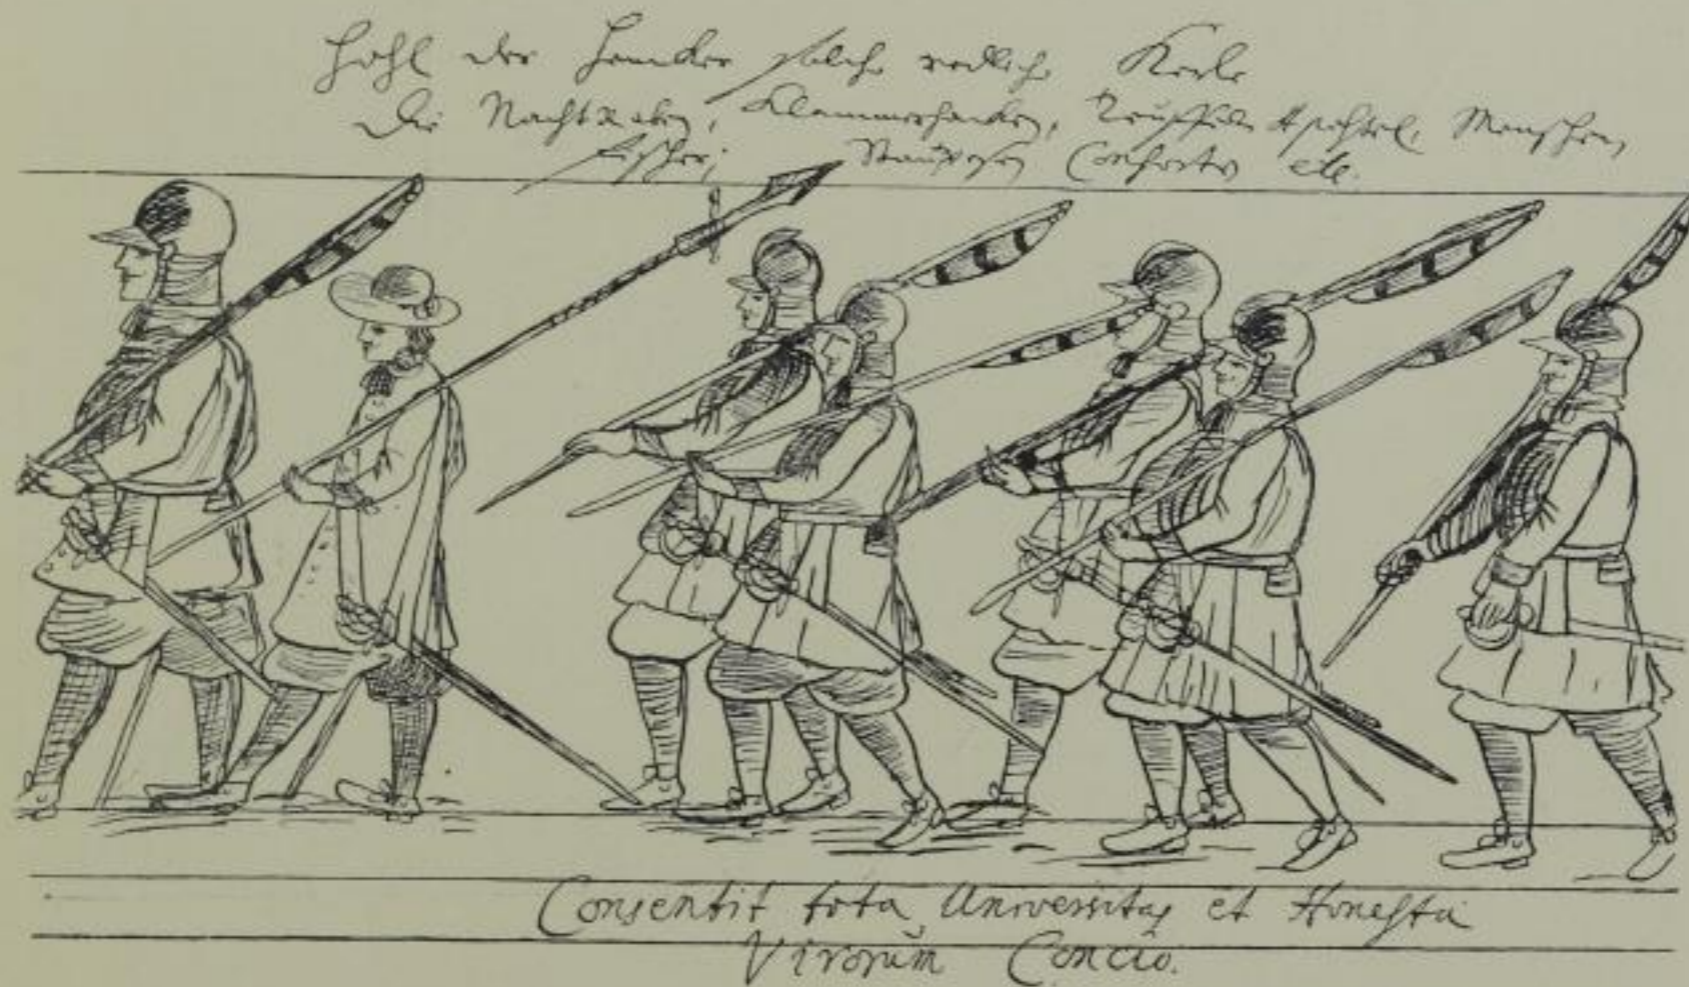 Hohl der Hencker solche redliche Kerls
Die Nachtraben, Klammerhacken, Teuffels Apostel, Menschen
fischer, Consorten etc.
Consentit tota Universitas et Honesta
Virorum Concio.